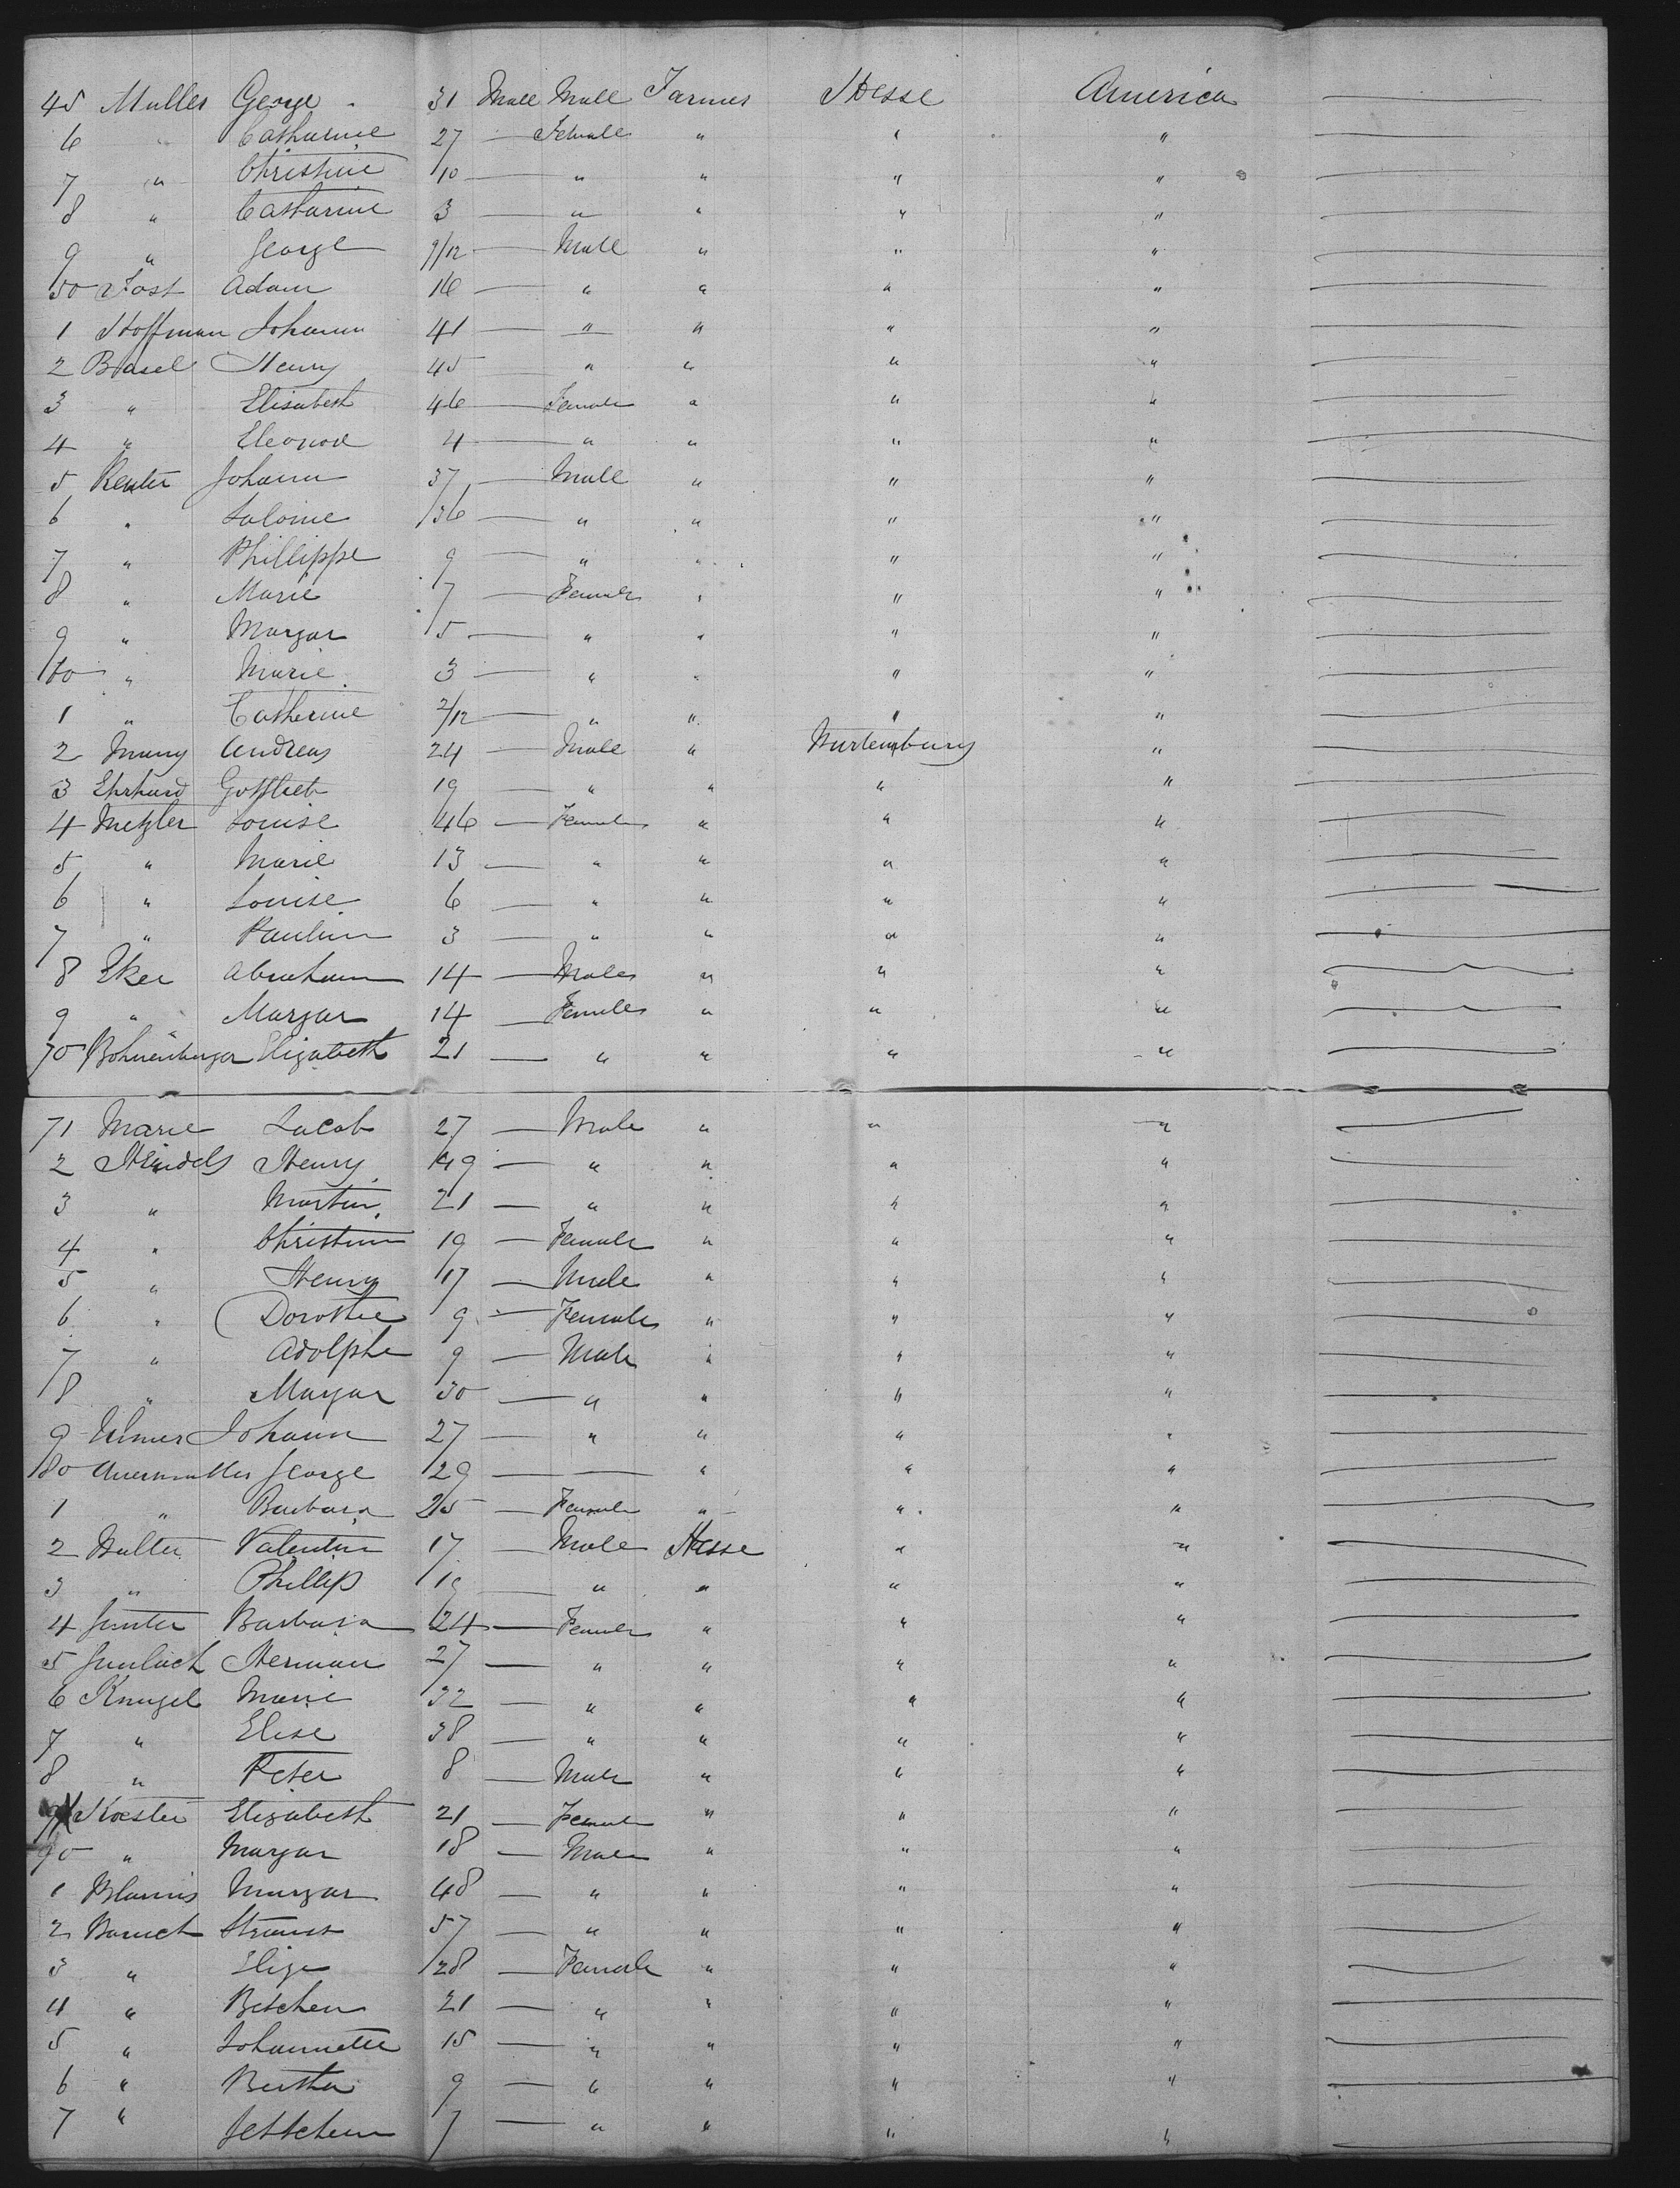 45 Muller George 31 Male Male Farmer Hesse America
6 " Catharine 27 — Female " " "
7 " Christine 10 — " " " "
8 " Catharine 3 — " " " "
9 " George 9/12 — Male " " "
50 Jost Adam 16 — " " " "
1 Hoffman Johann 41 — " " " "
2 Basel Henry 45 " " " "
3 " Elisabeth 46 — Female " " "
4 " Eleonore 4 — " " " "
5 Reuter Johann 37 — Male " " "
6 " Salome 36 — " " " "
7 " Phillippe 9 — " " " "
8 " Marie 7 — Female " " "
9 " Margar 5 — " " " "
60 " Marie 3 — " " " "
1 " Catherine 2/12 — " " " "
2 Andreas 24 — Male " Wurtemburg "
3 Ehrhard Gottlieb 19 — " " " "
4 Metzler Louise 46 — Female " " "
5 " Marie 13 — " " " "
6 " Louise 6 — " " " "
7 " Paulin 3 — " " " "
8 Eker Abraham 14 — Male " " "
9 " Margar 14 — Female " " "
70 Bohnenberger Elizabeth 21 — " " " "
71 Marie Jacob 27 — Male " " "
2 Henry 49 — " " " "
3 " Martin 21 — " " " "
4 " Christine 19 — Female " " "
5 " Henry 17 — Male " " "
6 " Dorothe 9 — Female " " "
7 " Adolphe 9 — Male " " "
8 " Margar 30 — " " " "
9 Ulmer Johann 27 — " " " "
80 George 29 — — " " "
1 " Barbara 25 — Female " " "
2 Walter Valentin 17 — Male Hesse " "
3 " Phillip 19 — " " " "
4 Barbara 24 — Female " " "
5 Herman 27 — " " " "
6 Marie 32 — " " " "
7 " Elise 38 — " " " "
8 " Peter 8 — Male " " "
9 Koester Elizabeth 21 — Female " " "
90 " Margar 18 — Male " " "
1 Margar 48 — " " " "
2 Baruch Strauss 57 — " " " "
3 " Elize 28 — Female " " "
4 " Betchen 21 — " " " "
5 " Johannette 15 — " " " "
6 " Bertha 9 — " " " "
7 " Jettchen 7 — " " " "